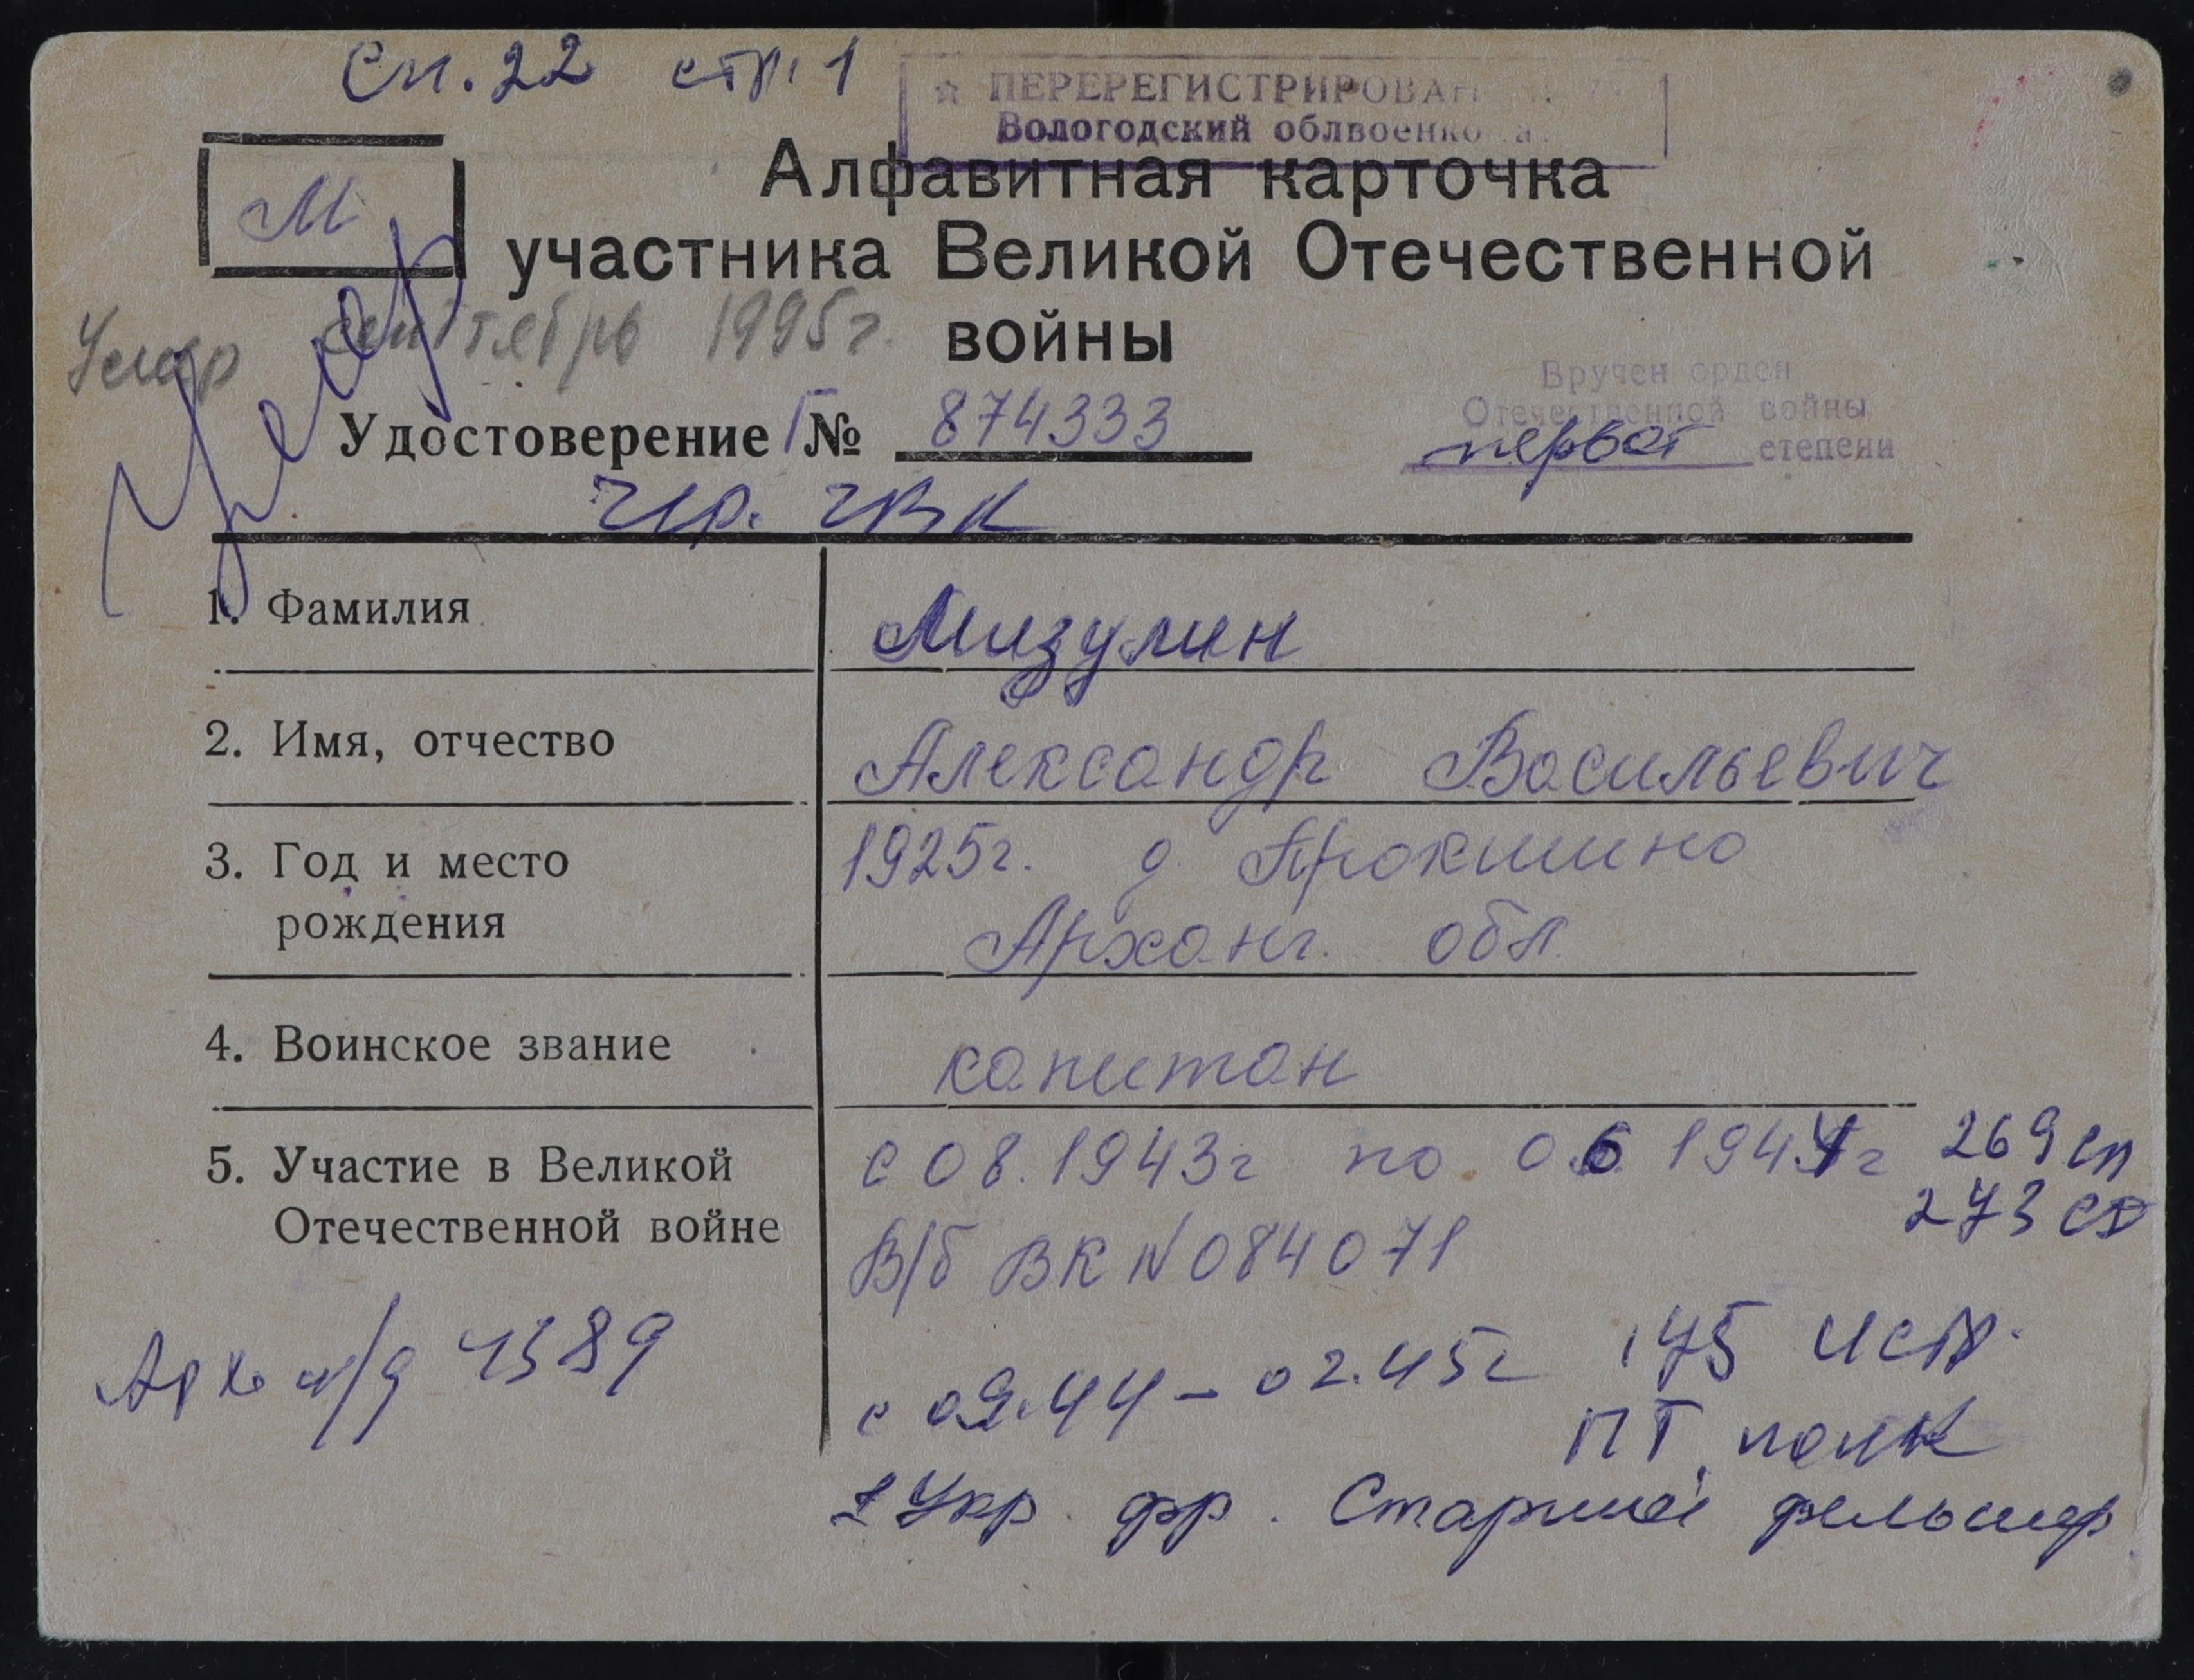 Сп. 22 стр. 1
☆ ПЕРЕРЕГИСТРИРОВАН
Вологодский облвоенко а
М
Алфавитная карточка
участника Великой Отечественной
войны
Умер сентябрь 1995г.
Умер
Вручен орден
Отечественной войны
первой степени
Удостоверение Г № 874333
Чер. ГВК
1. Фамилия Мизулин
2. Имя, отчество Александр Васильевич
3. Год и место 1925г. д Прокшино
рождения Арханг. обл.
4. Воинское звание капитан
5. Участие в Великой с 08.1943г по 06 1944г 269 сп
Отечественной войне 273 сд
В/б ВК N 084071
Арх. л/д 4389
с 09.44 – 02.45г 175 истр.
ПТ полк
1 Укр. фр. Старший фельшер